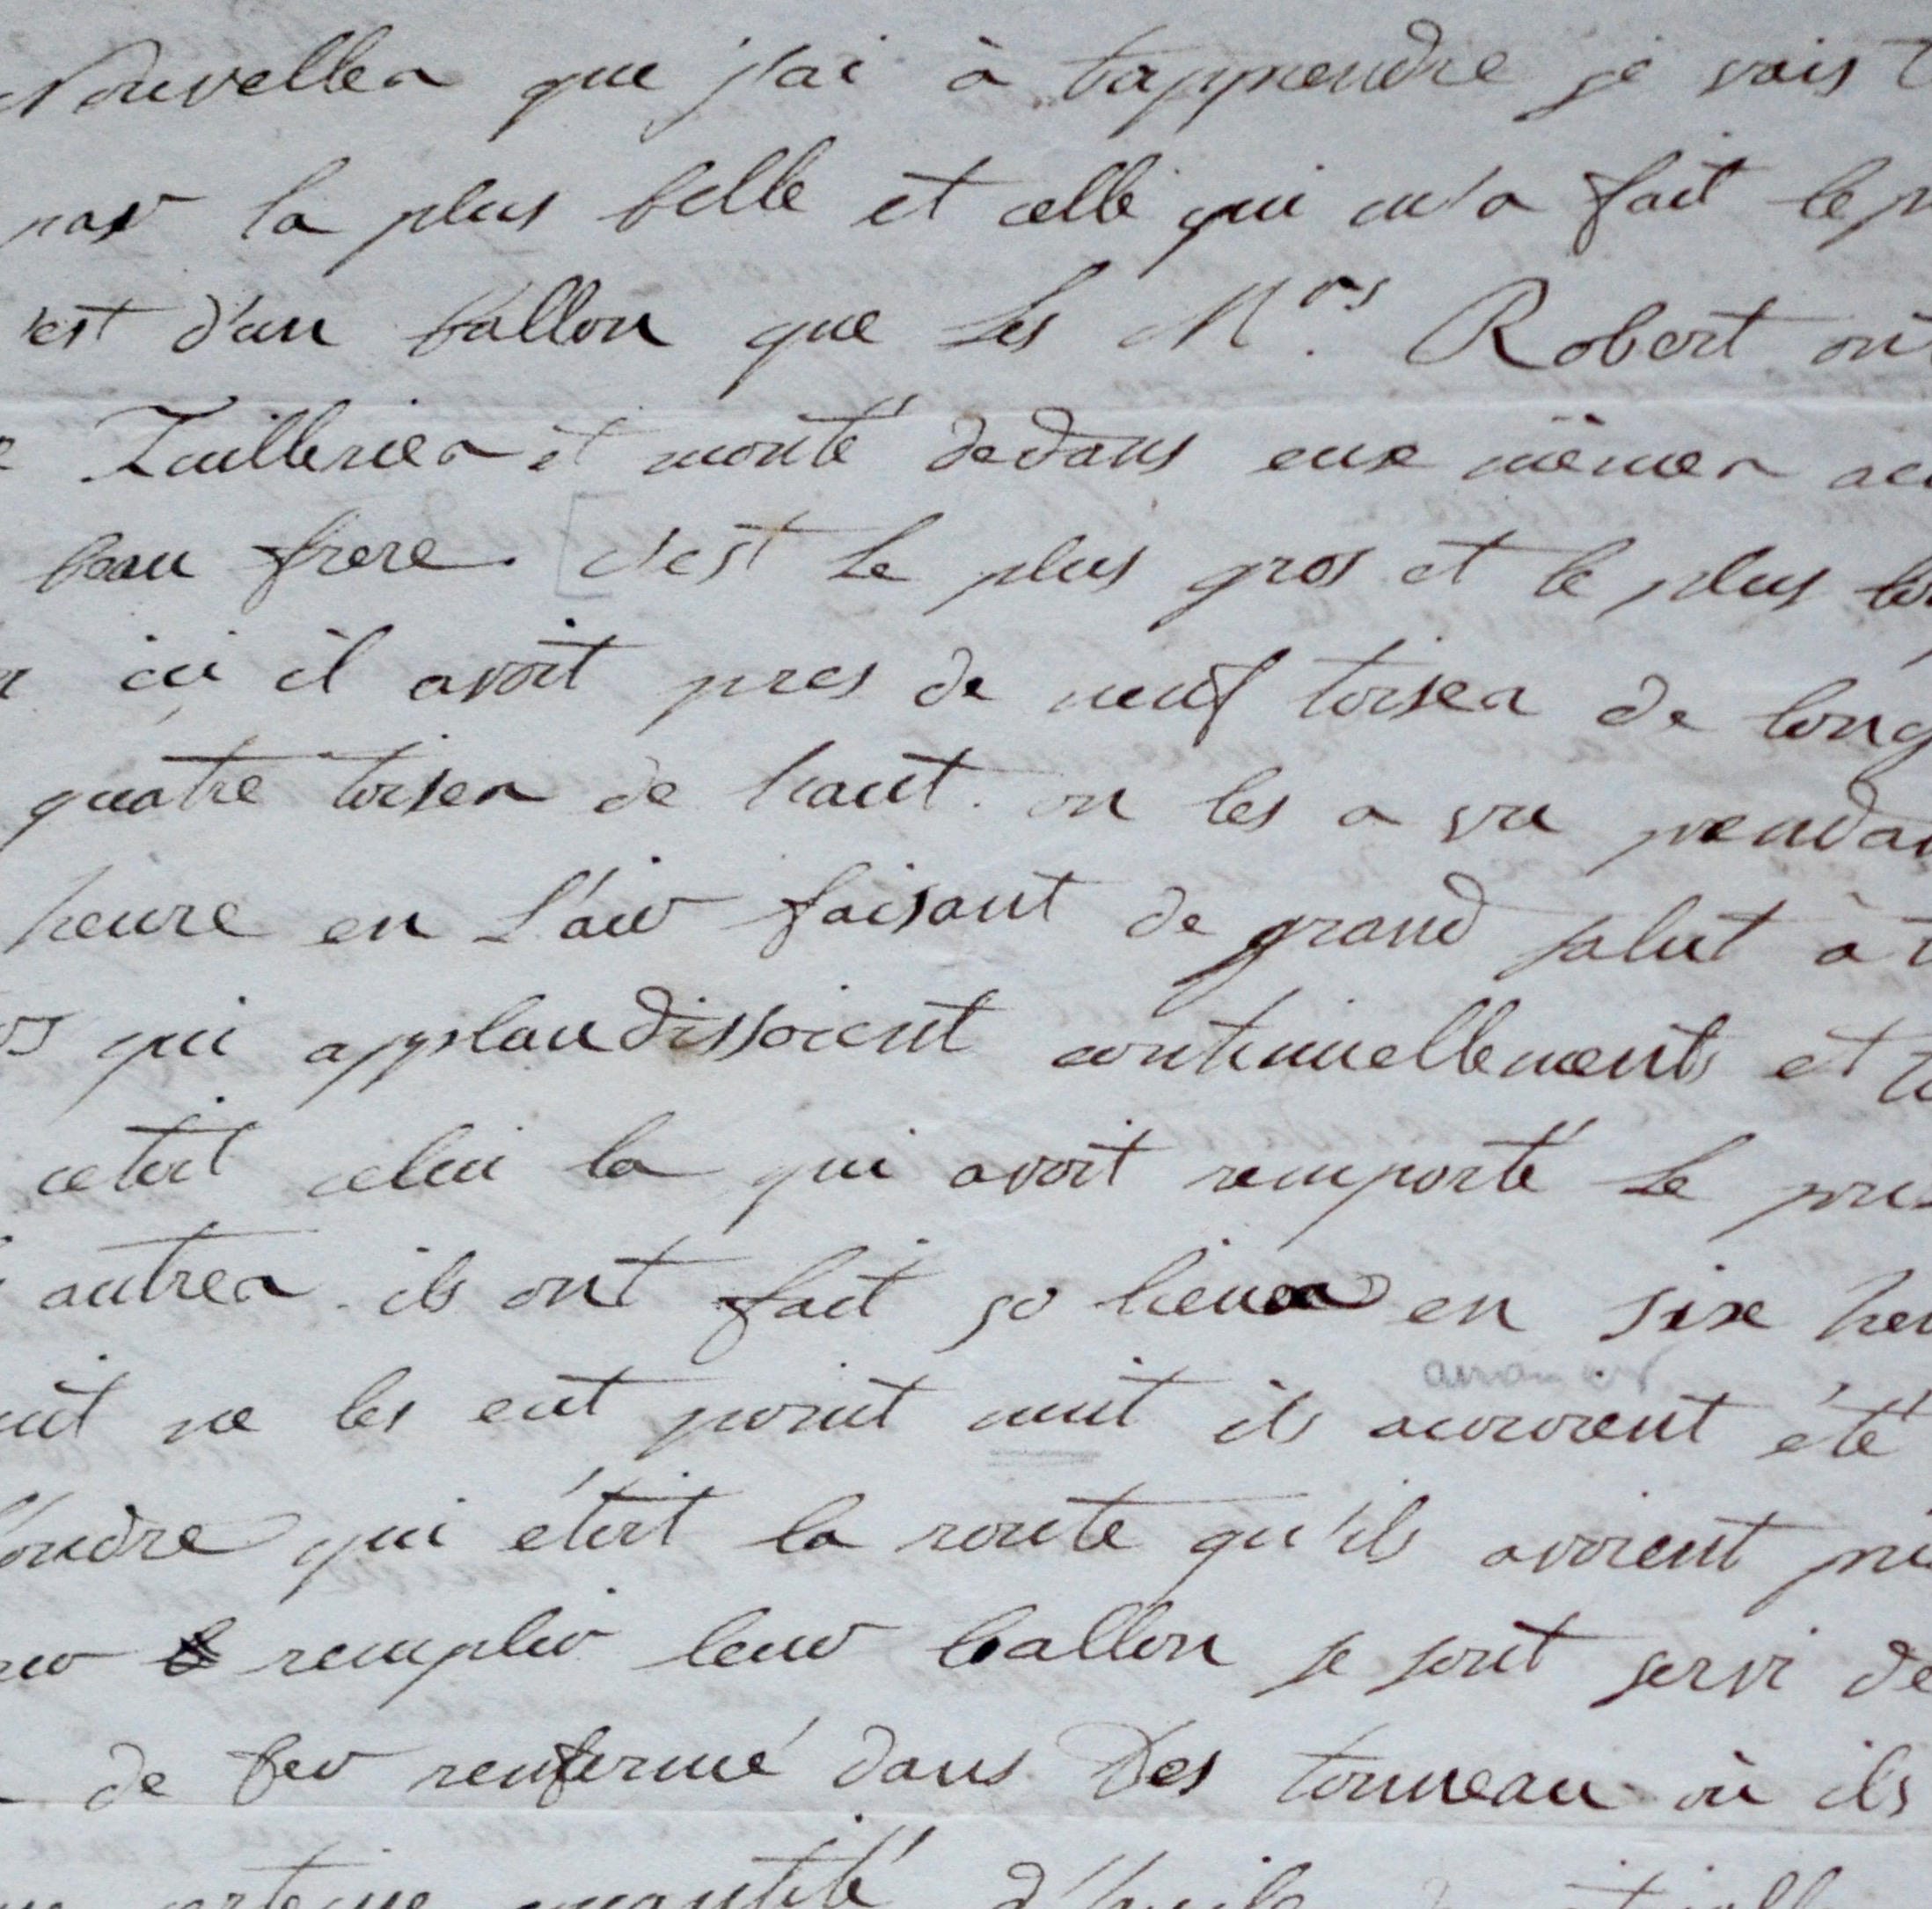 Nouvelles que j'ai à t'apprendre je vais
par la plus belle et celle qui m'a fait le
est d'un ballon que les M.rs Robert ont
Tuilleries et monté dedans eux mêmes
beau frere. [c'est le plus gros et le plus
ici il avoit pres de neuf toises de long
quatre toises de haut. on les a vu pendan
heure en l'air faisant de grand salut à
qui applaudissoient continuellements et
cetoit celui la qui avoit remporté le
autres. ils ont fait 50 lieues en sixe heu
ne les eut point nuit ils auroroient été
ondre qui étoit la route qu'ils avoient
remplir leur ballon se sont servi de
de fer renfermé dans Des tonneau où ils
quantité d'huile